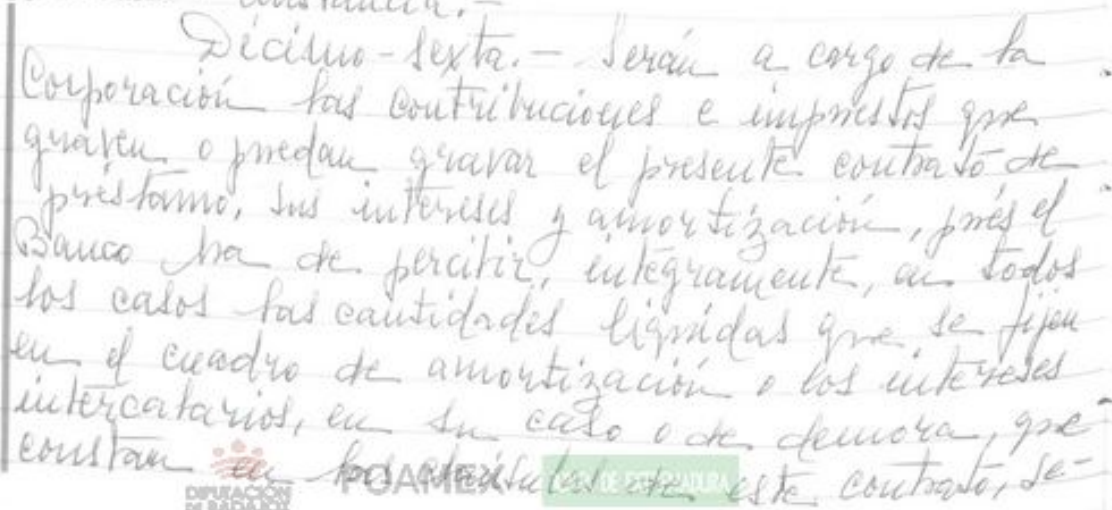 Décimo-Sexta.- Serán a cargo de la
Corporación las contribuciones e impuestos que
graven o puedan gravar el presente contrato de
préstamo, sus intereses y amortización, pués el
Banco ha de percibir, integramente, en todos
los casos las cantidades liquidas que se fijen
en el cuadro de amortización o los intereses
intercalarios, en su caso o de demora, que
constan en las cláusulas de este contrato, se-
DIPUTACIÓN
DE BADAJOZ
POAMEX